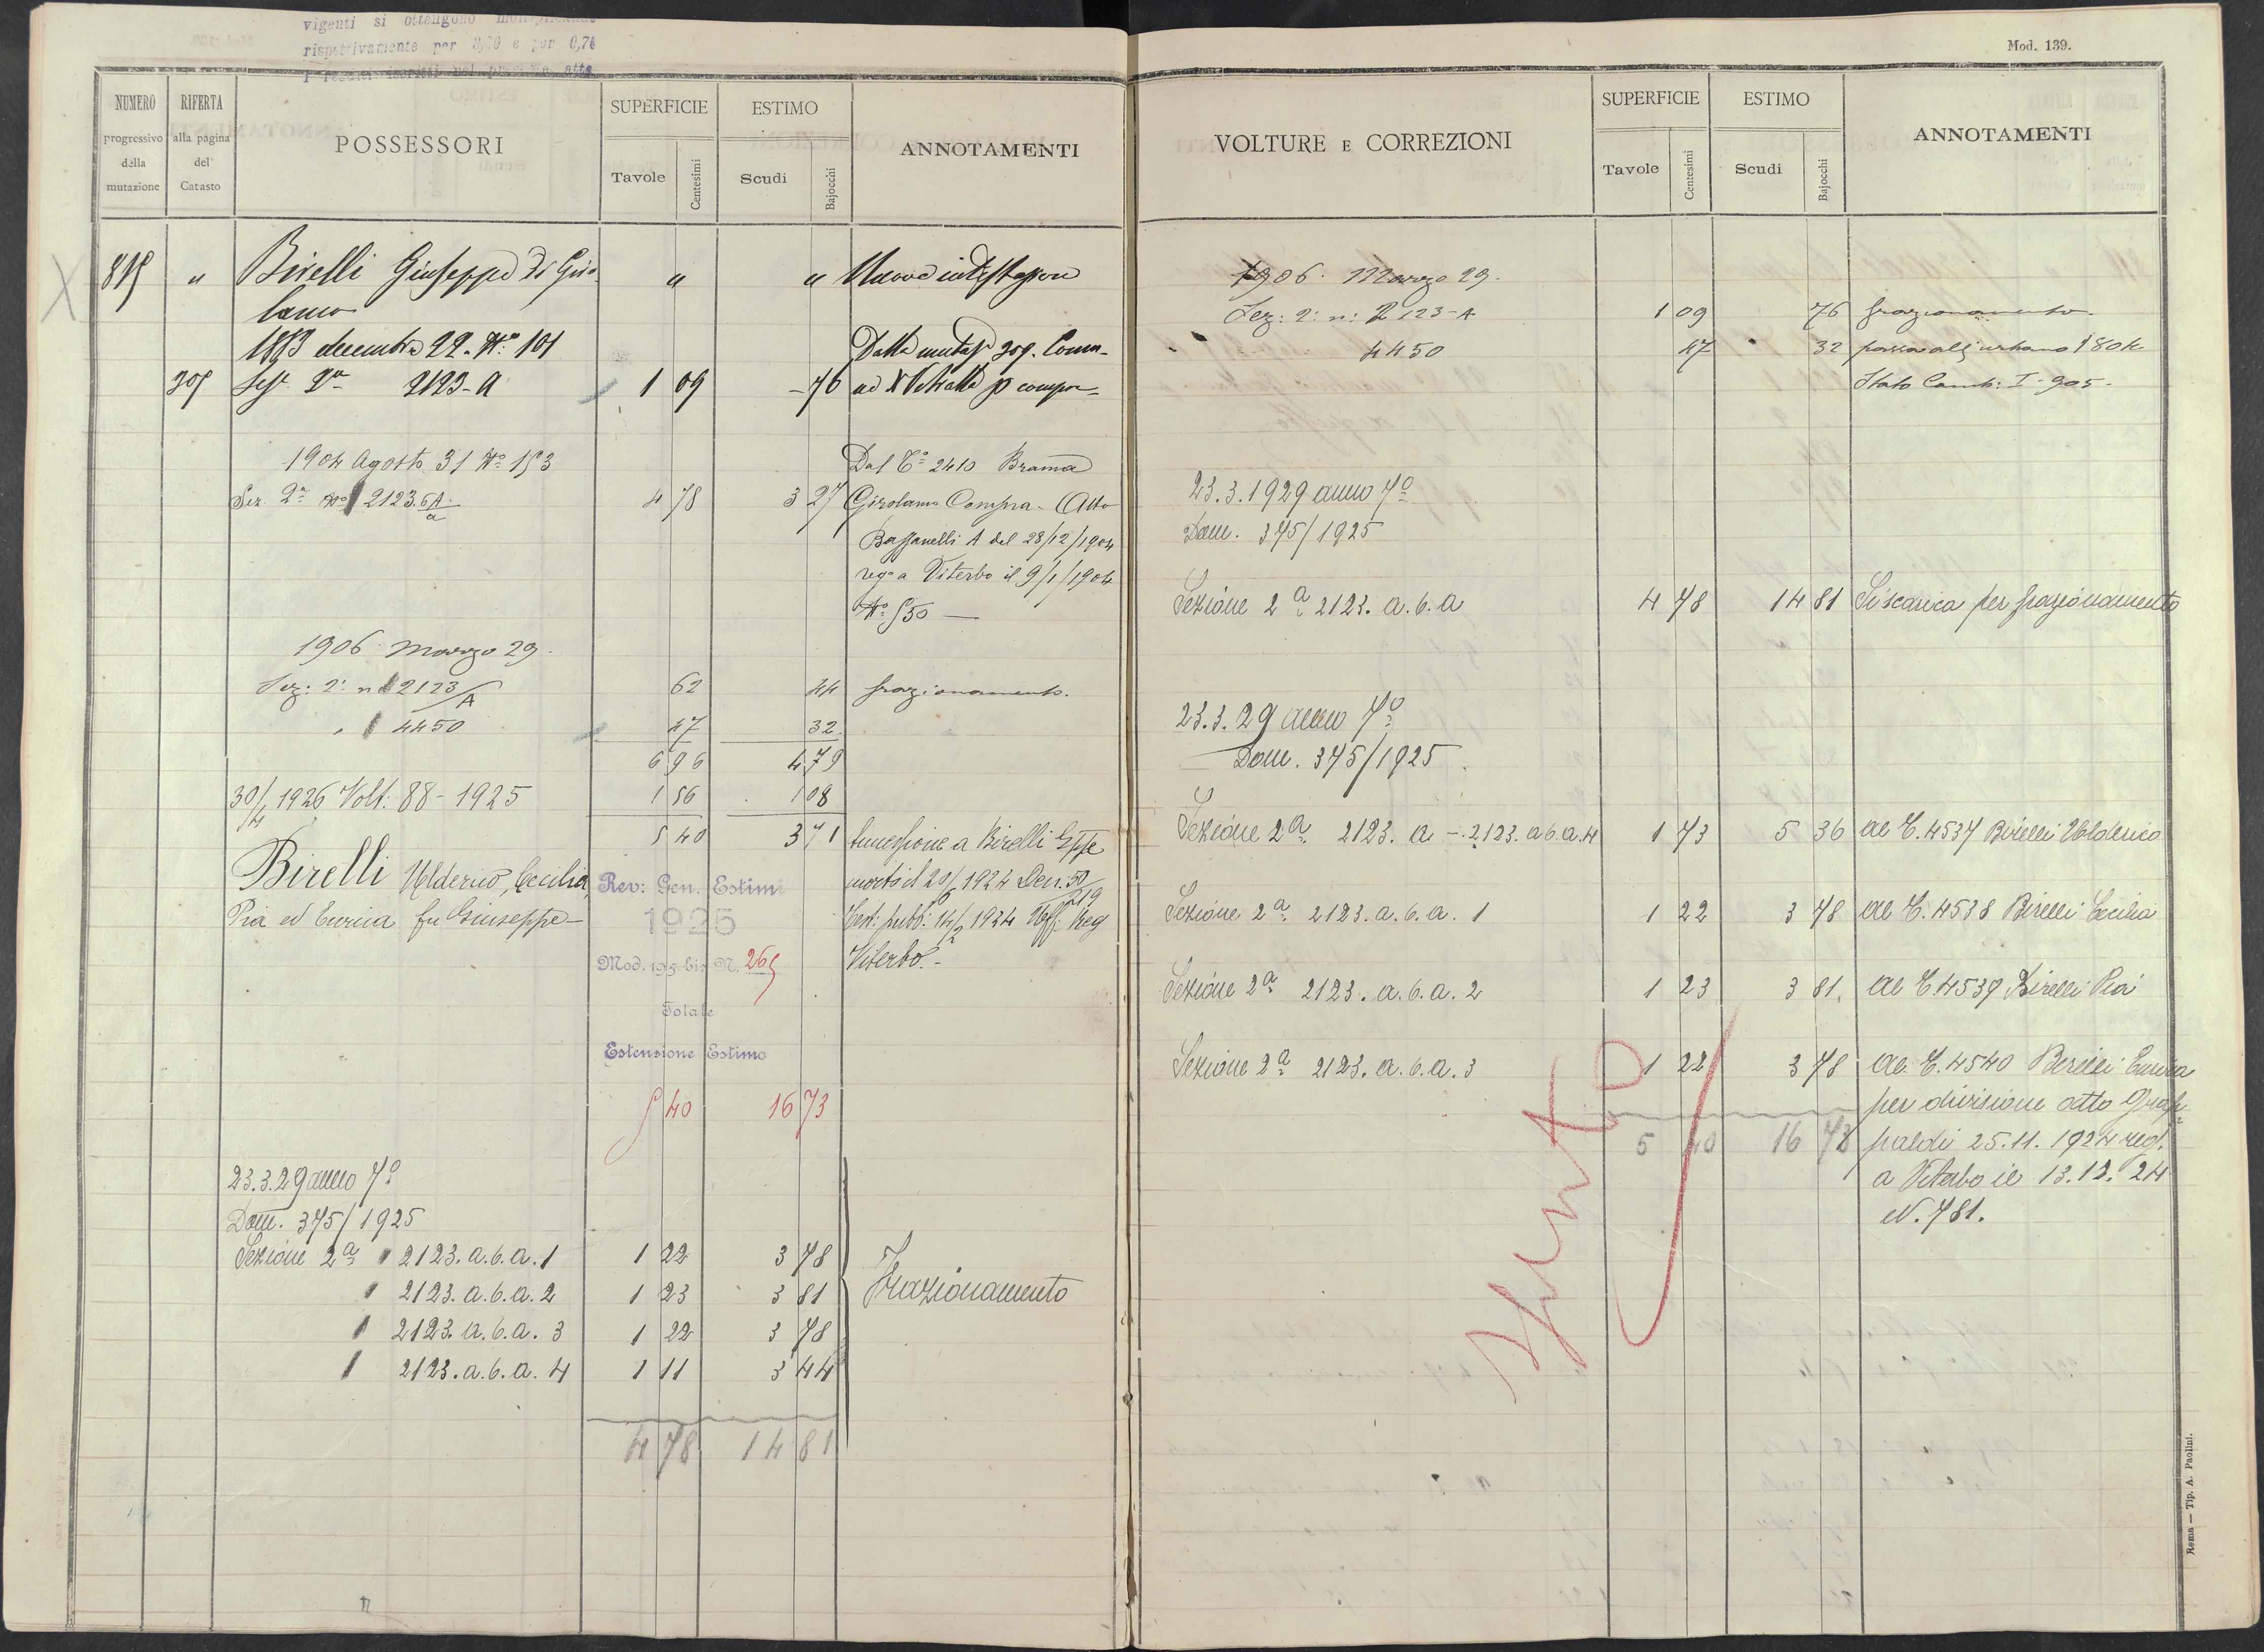 vigenti si ottengono moltiplicando
rispettivamente per 3,20 e per 0,76
NUMERO progressivo della mutazione
RIFERTA alla pagina del Catasto
POSSESSORI
SUPERFICIE
Tavole Centesimi
ESTIMO
Scudi Bajocchi
ANNOTAMENTI
815 " Birelli Giuseppe di Giro- " "
lamo
1883 decembre 22. N° 101 Dalla
305 Sez. 2a 2123-A 1 09 -76
1904 Agosto 31 N° 153 Dal C° 2410 Brama
Sez 2a N° 2123.6A/a 4 78 3 27 Girolamo Compra - Atto
Bassanelli A del 28/12/1904
reg° a Viterbo il 9/1/1904
N° 550 —
1906 Marzo 29.
Sez: 2: n 2123/A 62 44 frazionamento.
" 4450 47 32
6 96 4 79
30/4 1926 Volt: 88-1925 1 56 1 08
5 40 3 71 Successione a Birelli Gppe
Birelli Ulderico, Cecilia, Rev: Gen. Estimi morto il 20/6 1924 Den: 50/219
Pia ed Eurica fu Giuseppe — 1925 Test: pubb: 14/2 1924 Uff. Reg
Mod. 195 bis N. 265 Viterbo. -
Totale
Estensione Estimo
5 40 16 73
23.3.29 anno 7°
Dom. 375/1925
Sezione 2a 2123.a.6.a.1 1 22 3 78
2123.a.6.a.2 1 23 3 81 Frazionamento
2123.a.6.a.3 1 22 3 78
2123.a.6.a.4 1 11 3 44
4 78 14 81
Mod. 139.
VOLTURE E CORREZIONI
SUPERFICIE
Tavole Centesimi
ESTIMO
Scudi Bajocchi
ANNOTAMENTI
1906. Marzo 29.
Sez: 2: n: 2123-A 1 09 76 frazionamento.
4450 47 32 passa all'urbano 1804
Stato Camb: I-905-
23.3.1929 anno 7°
Dom. 375/1925
Sezione 2a 2123.a.6.a 4 78 14 81 Si scarica per frazionamento
23.3.29 anno 7°
Dom. 375/1925
Sezione 2a 2123.a - 2123.a6.a.4 1 73 5 36 al C. 4537 Birelli Ulderico
Sezione 2a 2123.a.6.a.1 1 22 3 78 al C. 4538 Birelli Cecilia
Sezione 2a 2123.a.6.a.2 1 23 3 81. al C. 4539 Birelli Pia
Sezione 2a 2123.a.6.a.3 1 22 3 78 al C. 4540 Birelli Eurica
per divisione atto
5 40 16 73 paldi 25.11.1924 reg.
a Viterbo il 13.12.24
N. 781.
Spento
Roma — Tip. A. Paolini.